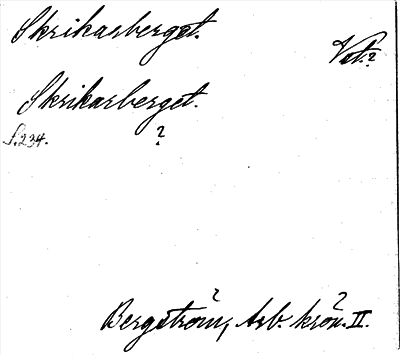 Skrikarberget.
Vst.?
Skrikarberget.
S. 234. ?
Bergström, Arb. krön. II.